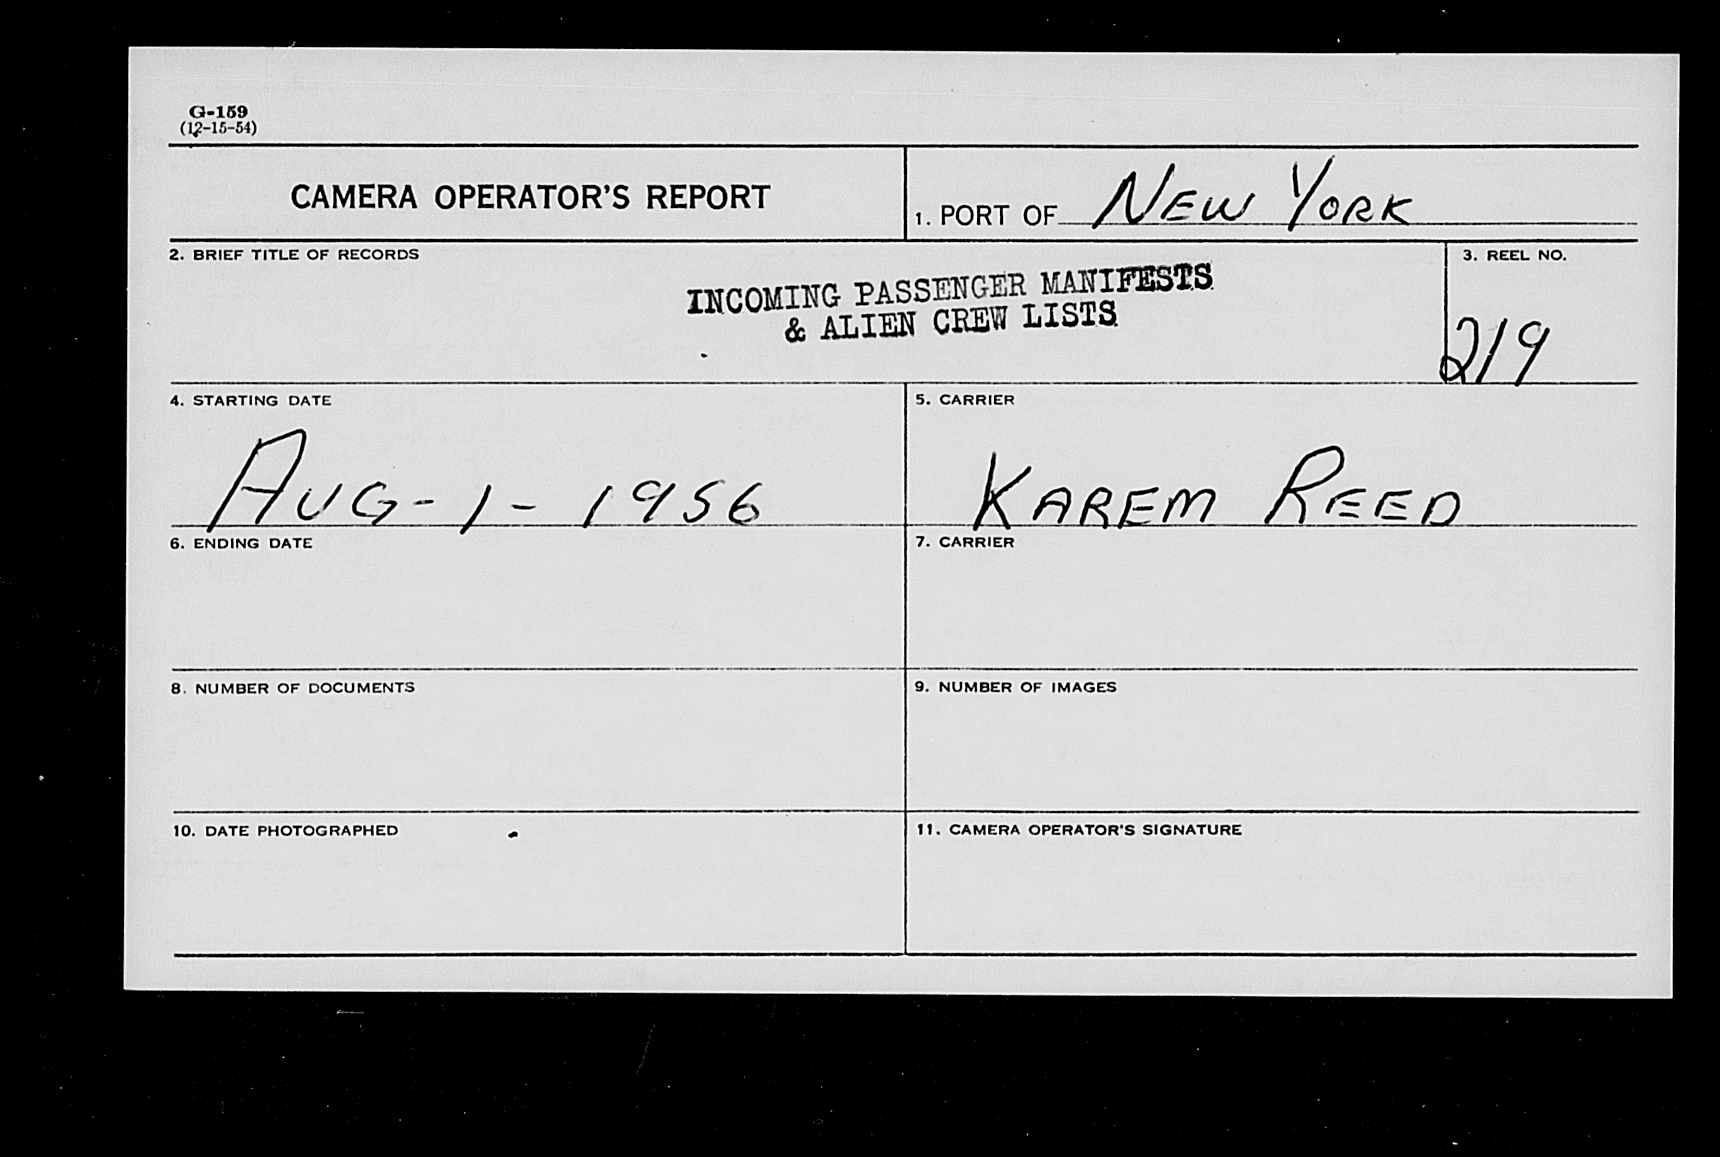 G-159
(12-15-54)
CAMERA OPERATOR'S REPORT
1. PORT OF NEW YORK
2. BRIEF TITLE OF RECORDS
INCOMING PASSENGER MANIFESTS
& ALIEN CREW LISTS
3. REEL NO.
219
4. STARTING DATE
AUG-1-1956
5. CARRIER
KAREM REED
6. ENDING DATE
7. CARRIER
8. NUMBER OF DOCUMENTS
9. NUMBER OF IMAGES
10. DATE PHOTOGRAPHED
11. CAMERA OPERATOR'S SIGNATURE